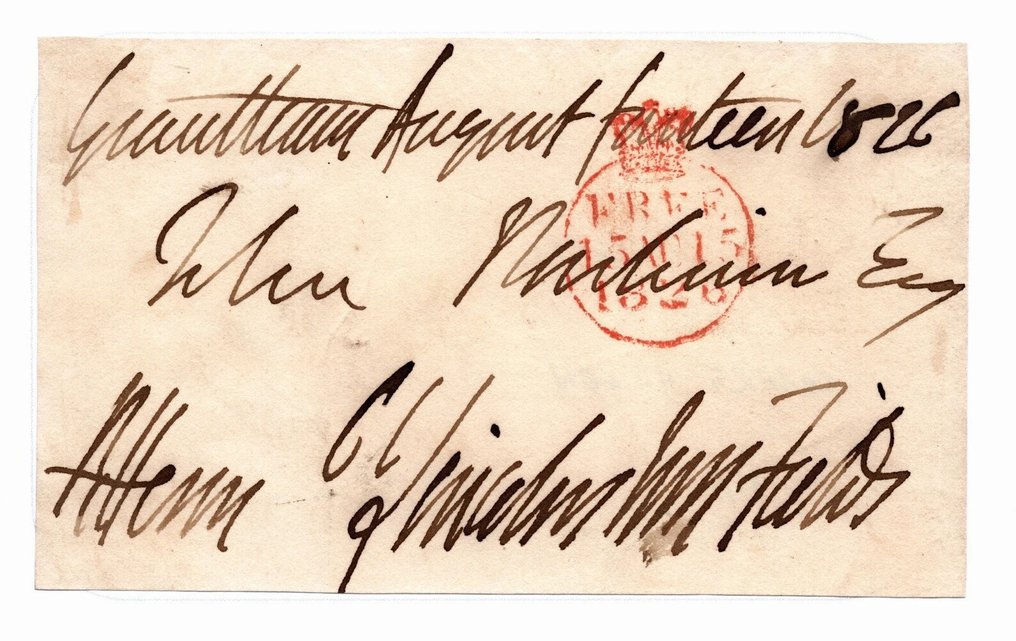 Grantham August fourteen 1826
John Esq
FREE
15 AU 15
1826
Lincolns Inn Fields